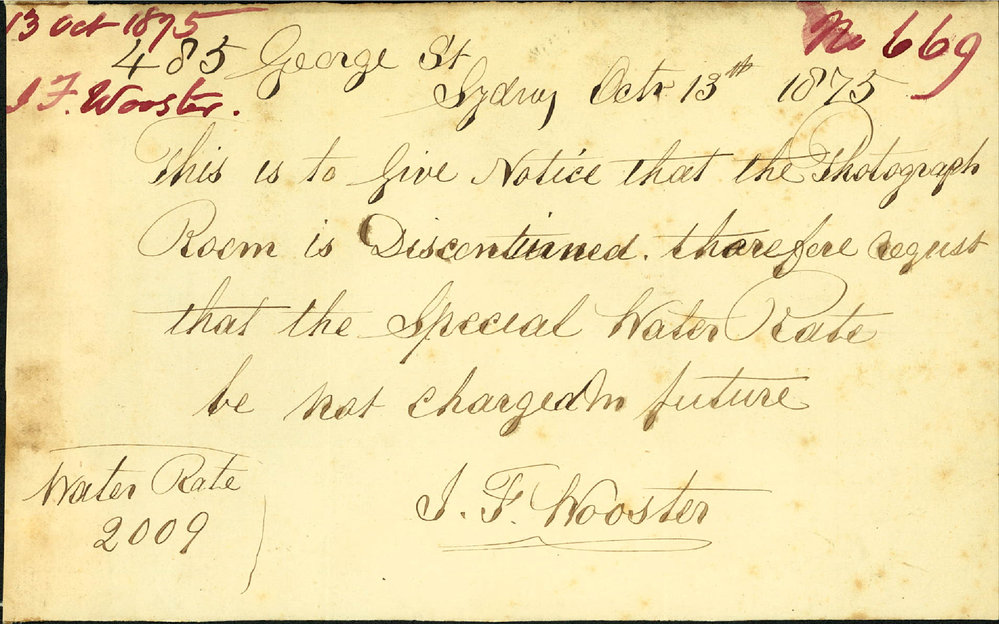 13 Oct 1875
No 669
485 George St
J F. Wooster.
Sydney Octr 13th 1875
This is to Give Notice that the Photograph
Room is Discontinned. tharefore requst
that the Special Water Rate
be not charged In future
Water Rate
2009
J. F. Wooster